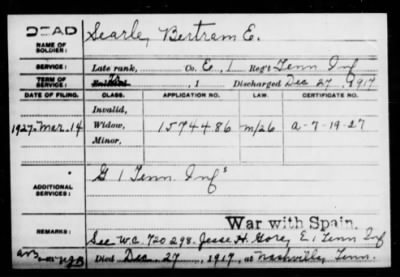 DEAD
NAME OF SOLDIER: Searle, Bertram E.
SERVICE: Late rank, Co. E, 1 Reg't Tenn Inf
TERM OF SERVICE: Enlisted , 1 Discharged Dec 27, 1917
DATE OF FILING. CLASS. APPLICATION NO. LAW. CERTIFICATE NO.
Invalid,
1927-Mar. 14 Widow, 1574486 m/26 a-7-19-27
Minor,
ADDITIONAL SERVICES: G 1 Tenn Inf s
War with Spain.
REMARKS: See W.C. 720298. Jesse H. Gore, E, 1 Tenn Inf
Died Dec 27, 1917, at Nashville, Tenn.